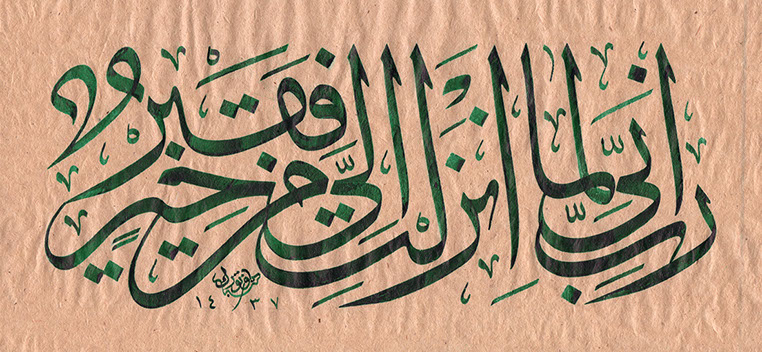 رب إني لما أنزلت إلي من خير فقير
١٤٣٧